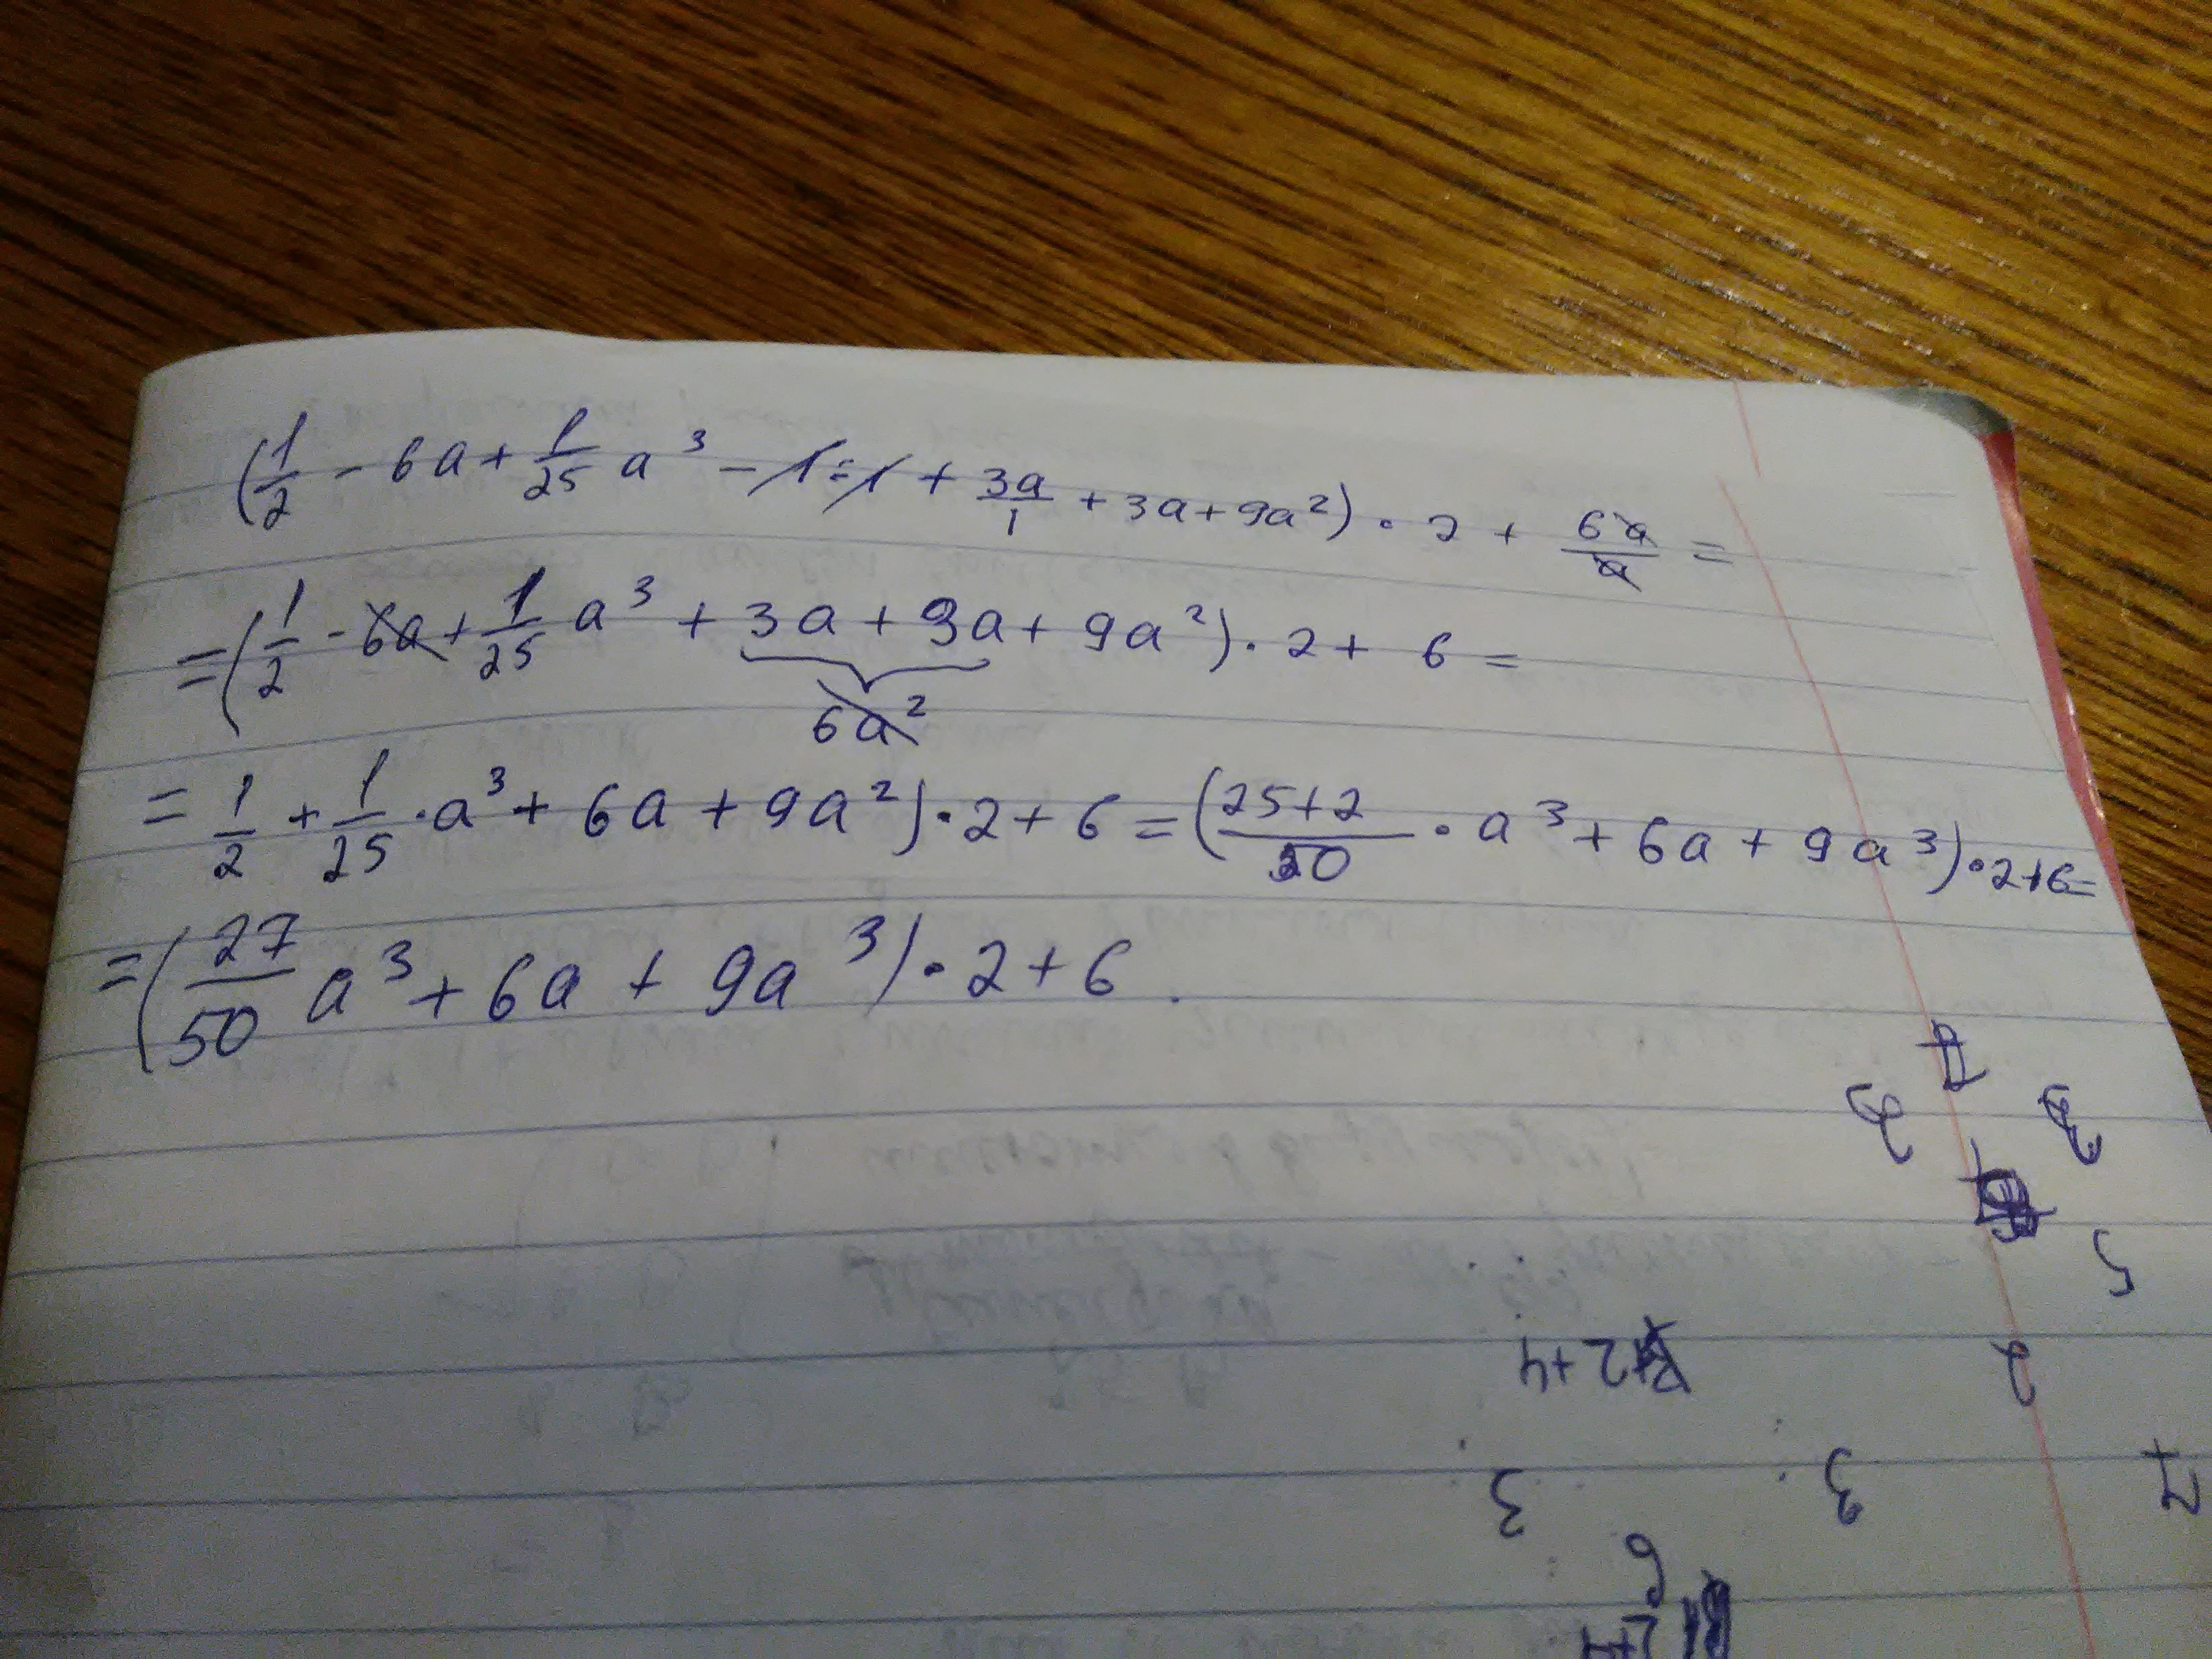 (1/2 - 6a + 1/25 a³ - 1 : 1 + 3a/1 + 3a + 9a²) · 2 + 6a/a =
= (1/2 - 6a + 1/25 a³ + 3a + 3a + 9a²) · 2 + 6 =
6a²
= 1/2 + 1/25 · a³ + 6a + 9a²) · 2 + 6 = (25+2/50 · a³ + 6a + 9a³) · 2+6=
= (27/50 a³ + 6a + 9a³) · 2 + 6 .
2 3
5
2+4 2
3 3 7
6